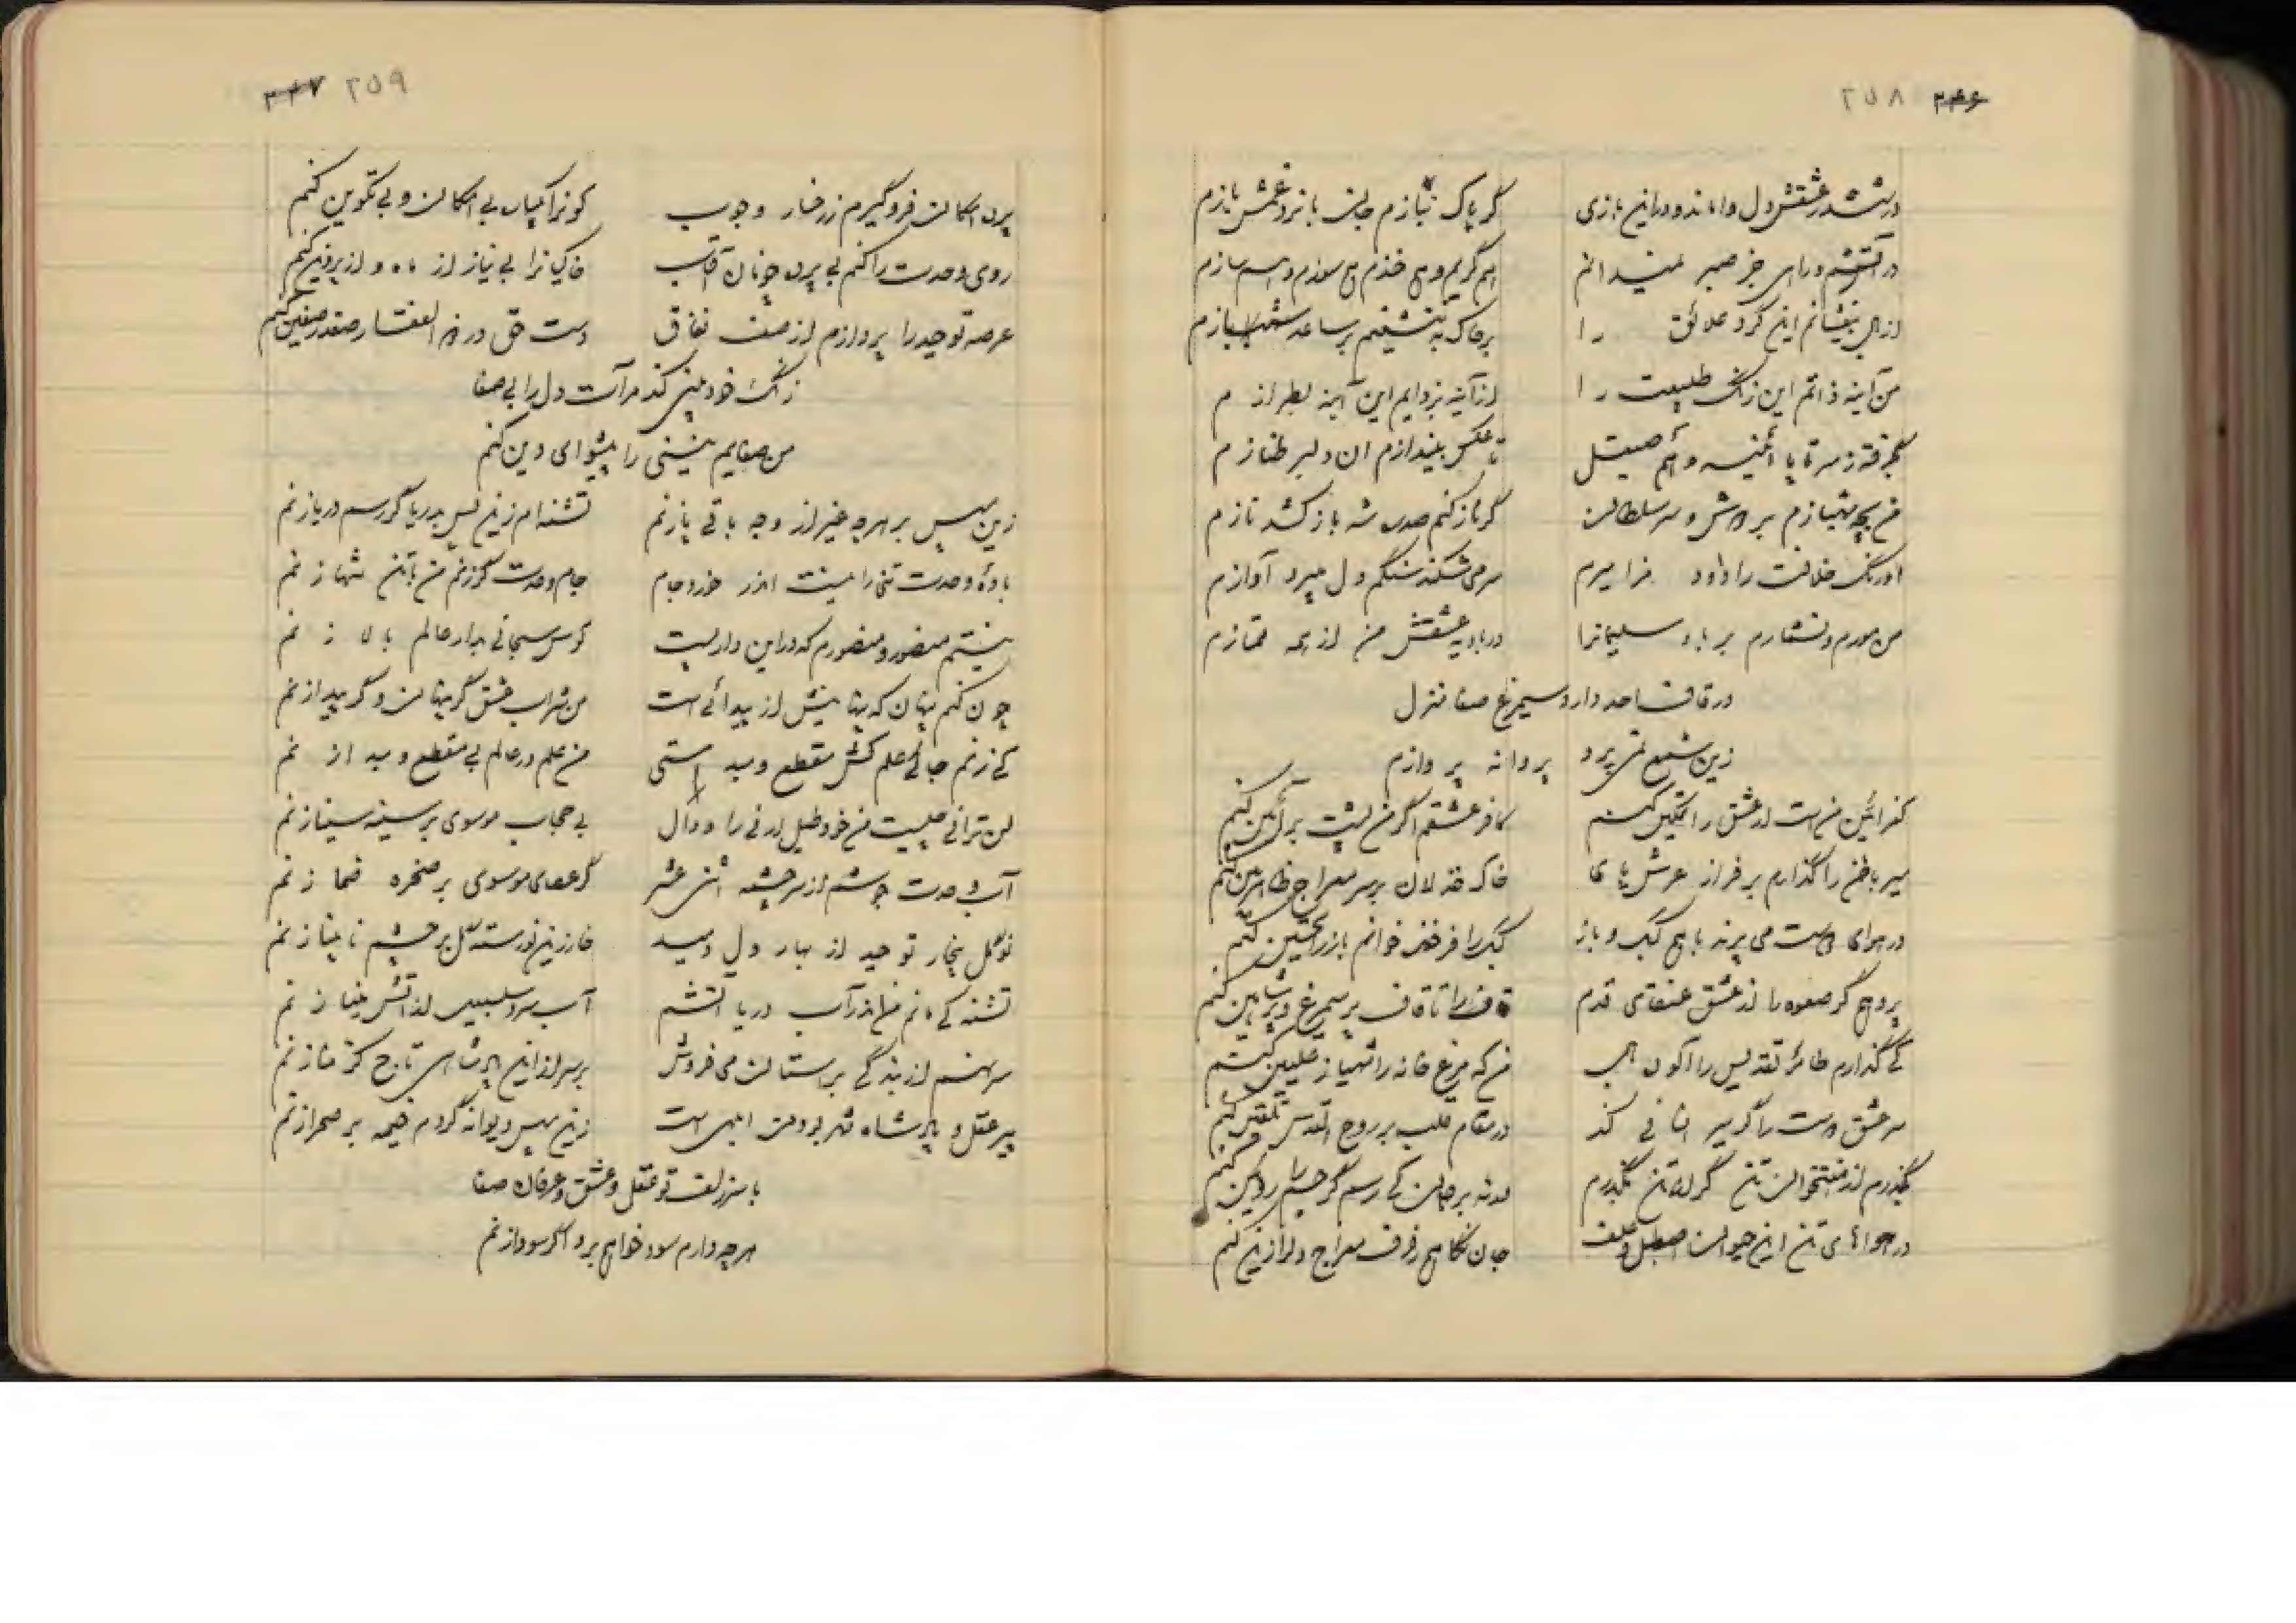 ۲۴۶ ۲۵۸
در ششدر عشقش دل واماند و در این بازی گر پاک نبازم جان با نرد غمش بازم
در آتشم و رای جز صبر نمیدانم هم گریم و هم خندم هم سوزم و هم سازم
از بال بیفشانم این گرد علائق را بر خاک به ننشینم بر ساعد شه بازم
من آینه ذاتم این زنگ طبیعت را از آینه بزدایم این آینه بطرازم
بگرفته ز سر تا پا آئینه و هم صیقل تا عکس بیندازم آن دلبر طنازم
من بچه شهبازم بر دوش و سر سلطان گر ناز کنم صد ره شه باز کشد نازم
اورنگ خلافت را داود مزامیرم سر می شکند سنگم دل میبرد آوازم
من مورم و نشمارم بر باد سلیمانرا در بادیه عشقش من از همه ممتازم
در قاف احد دارد سیمرغ صفا منزل
زین شمع نمی پرد پروانه پروازم
کفر آئین من است ار عشق را تمکین کنم کافر عشقم اگر من پشت بر آئین کنم
سیر باطن را گذارم بر فراز عرش پای خاک خذلان بر سر معراج ظاهربین کنم
در هوای دوست می پرند با هم کبک و باز کبک را فرخنده خوانم باز را تحسین کنم
پر دهم گر صعوه را از عشق عنقای قدم قاف را تا قاف پر سیمرغ و پر شاهین کنم
کی گذارم طائر تقدیس را آکون طلب من که مرغ خانه را شهباز علیین کنم
سر عشق دوست را گر پیر انشائی کند در مقام قلب بر روح القدس تلقین کنم
بگذرم از هفتخوان تن گر از تن نگذرم ور نه بر جان کی رسم گر جسم را روئین کنم
در هوای تن این حیوان اصطبل و علف جان نکاهم رفرف معراج را زین کنم
۲۴۷ ۲۵۹
پرده امکان فرو گیرم ز رخسار وجوب کونرا یکباره بی امکان و بی تکوین کنم
روی وحدت را کنم بی پرده چونان آفتاب خاکیانرا بی نیاز از ماه و از پروین کنم
عرصه توحید را پردازم از صف نفاق دست حق در ذوالفقار صفدر صفین کنم
زنگ خودبینی کند مرآت دل را بی صفا
من صفایم نیستی را پیشوای دین کنم
زین سپس بر هر چه غیر از وجه باقی پا زنم تشنه ام زین پس بدریا گر رسم دریا زنم
باده وحدت تنی را نیست اندر خورد جام جام وحدت گر زنم من با تن تنها زنم
نیستم منصور و منصورم که در این دار نیست کوس سبحانی بدار عالم بالا زنم
چون کنم پنهان که پنهانیش از پیدائی است من شراب عشق گر پنهان و گر پیدا زنم
کی زنم جائی علم کش مقطع و مبداستی من علم در عالم بی مقطع و مبدا زنم
لن ترانی چیست من خود طبل ارنی را و دال بی حجاب موسوی بر سینه سینا زنم
آب وحدت جوشم از سرچشمه اثنی عشر گر عصای موسوی بر صخره صما زنم
نو گل بیخار توحید از بهار دل دمید خار زین نو رسته گل بر چشم نابینا زنم
تشنه کی مانم من از آب دریا آتشم آب بر سلسبیل از آتش مینا زنم
سر نهم از بندگی بر آستان می فروش بر سر از این پادشاهی تاج کرمنا زنم
پیر عقل و پادشاه شهر بودن ابلهی است زین سپس دیوانه گردم خیمه بر صحرا زنم
با سر زلف تو عقل و عشق و عرفان صفا
هر چه دارم سود خواهم برد اگر سودا زنم